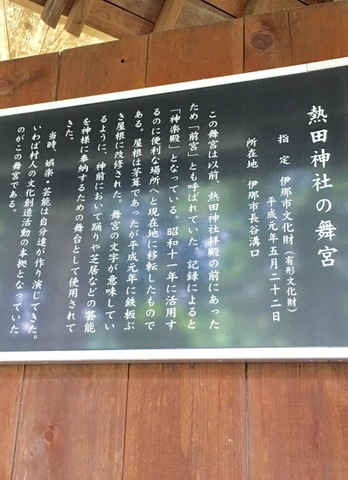 熱田神社の舞宮
指定 伊那市文化財(有形文化財)
平成元年五月二十二日
所在地 伊那市長谷溝口
この舞宮は以前、熱田神社拝殿の前にあった
ため「前宮」とも呼ばれていた。記録によると
「神楽殿」となっている。昭和十一年に活用す
るのに便利な場所へと現在地に移転したもので
ある。屋根は茅葺であったが平成元年に鉄板ぶ
き屋根に改修された。舞宮の文字が意味してい
るように、神前において踊りや芝居などの芸能
を神様に奉納するための舞台として使用されて
きた。
当時、娯楽・芸能は自分達が作り演じてきた。
いわば村人の文化創造活動の本拠となっていた
のがこの舞宮である。